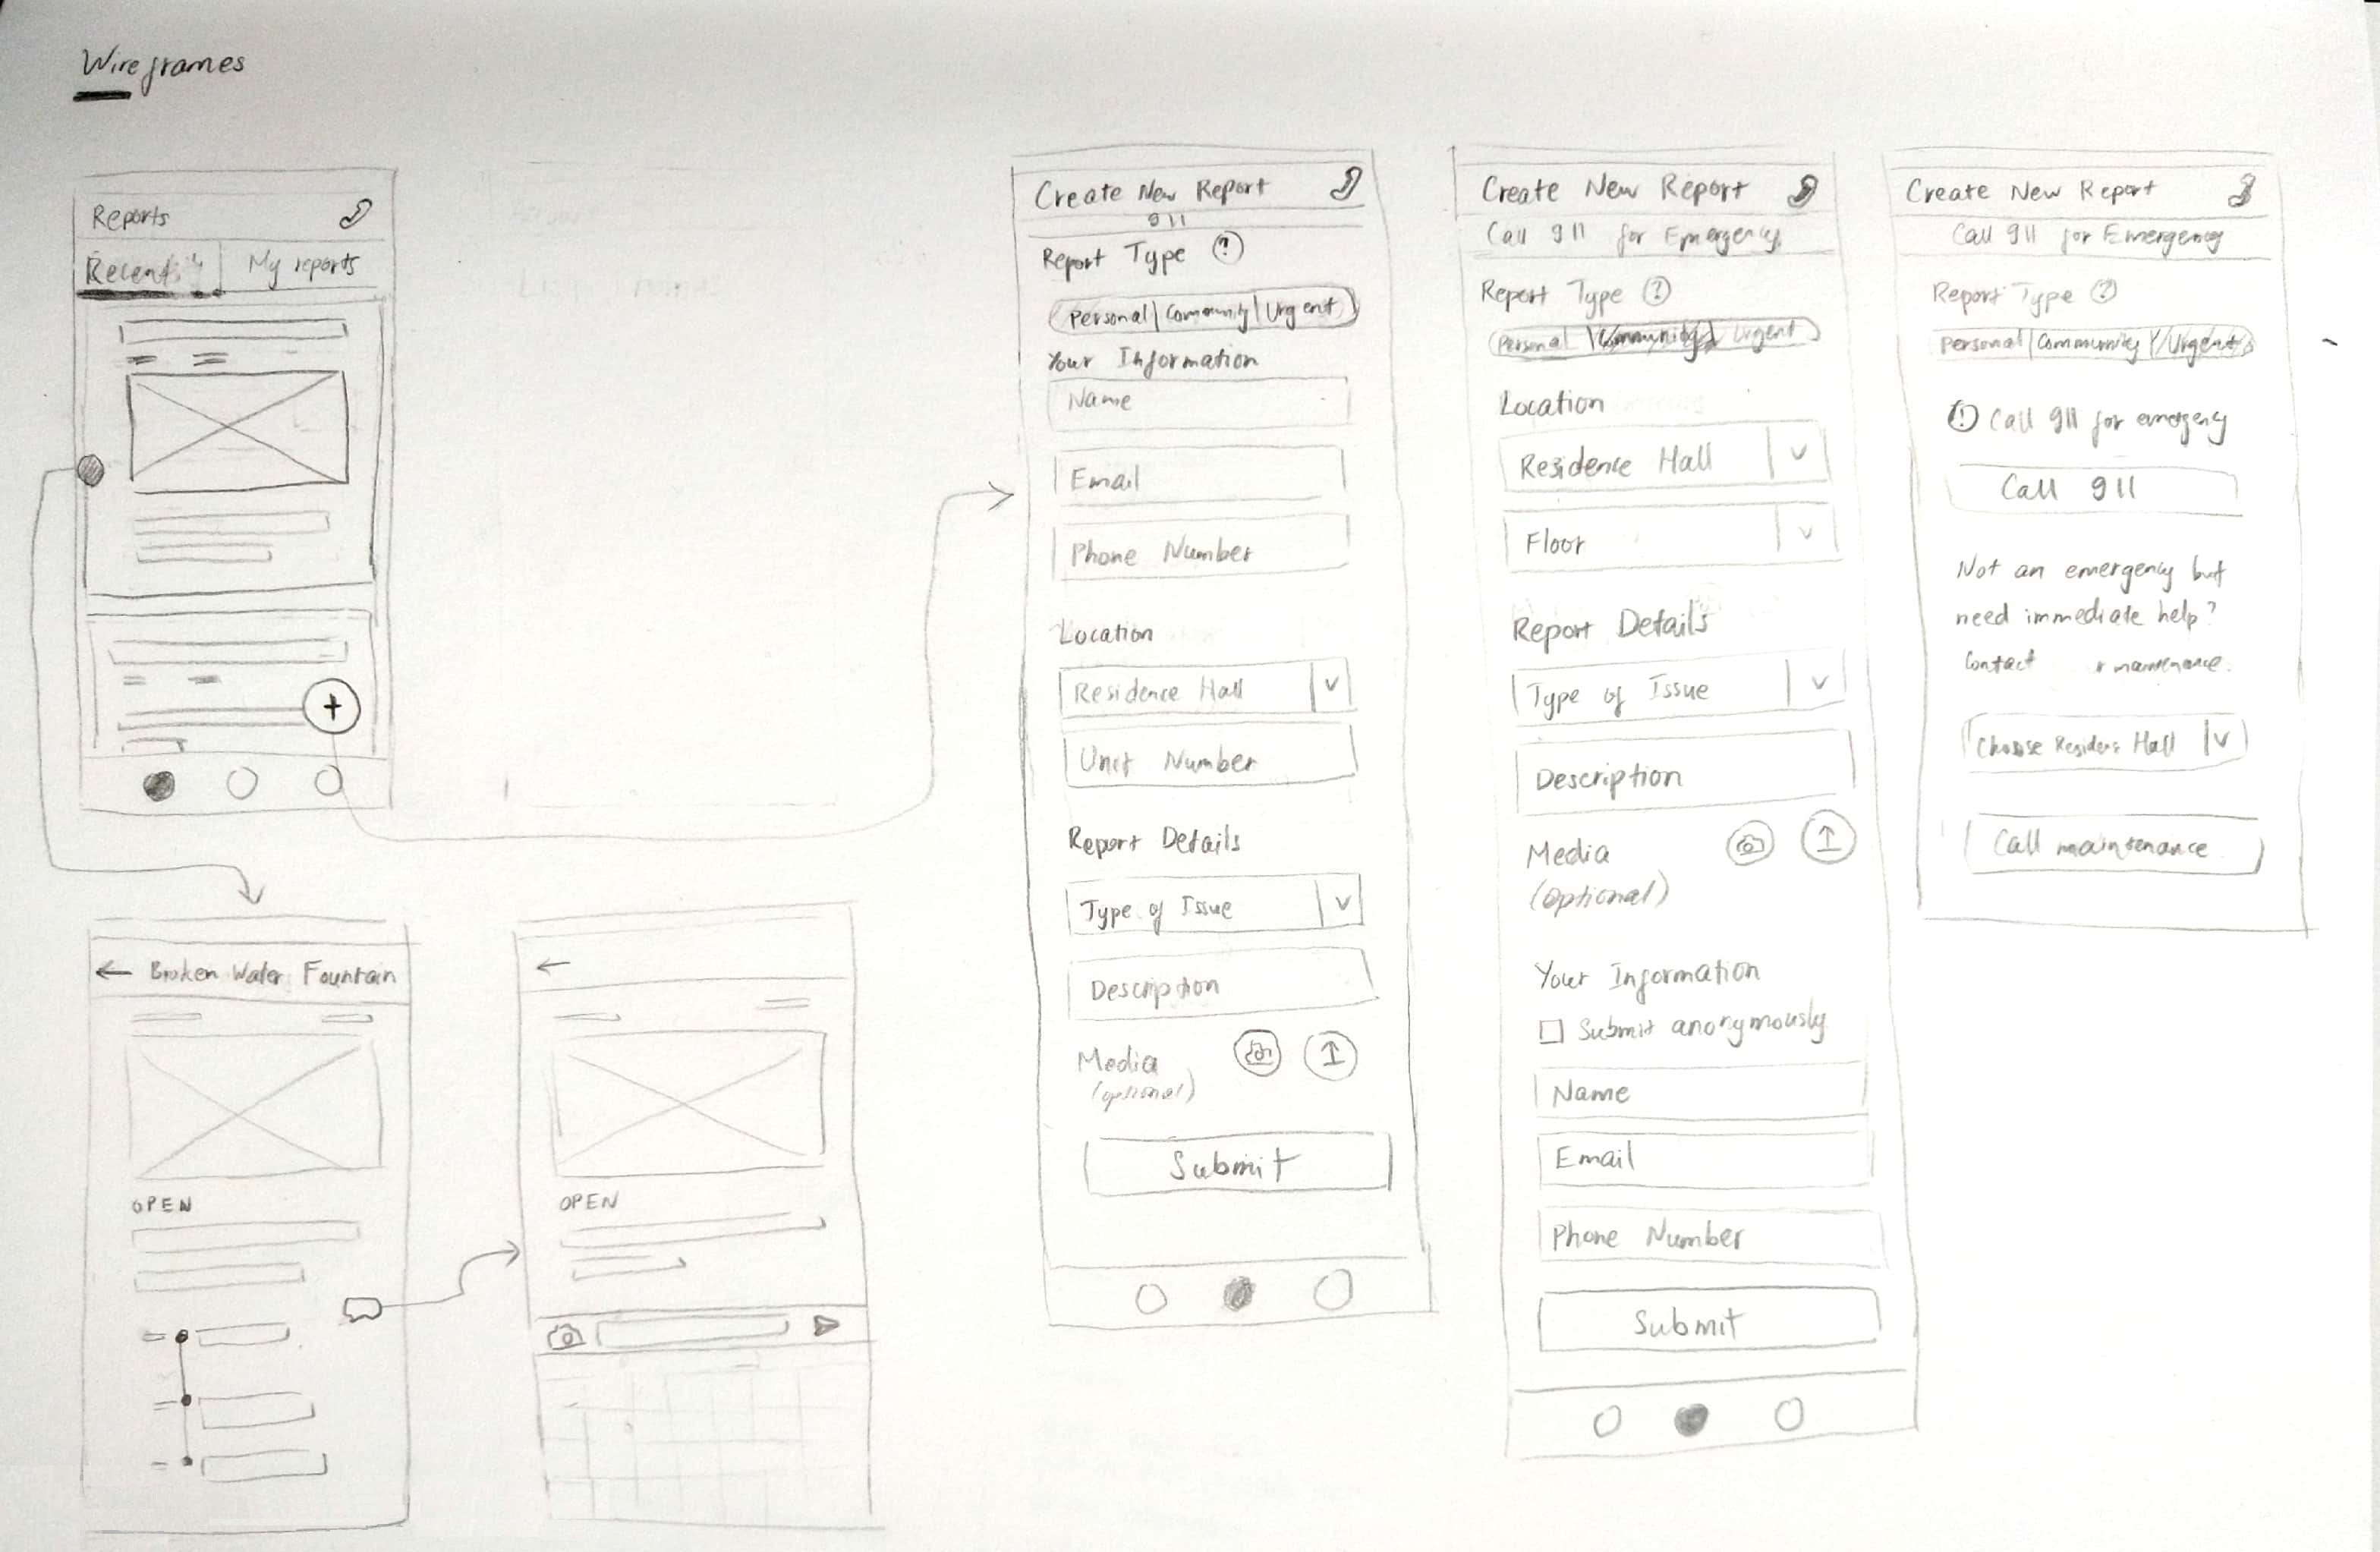 Wireframes
Reports
Recent
My reports
← Broken Water Fountain
OPEN
←
OPEN
Create New Report
911
Report Type ?
Personal | Community | Urgent
Your Information
Name
Email
Phone Number
Location
Residence Hall
Unit Number
Report Details
Type of Issue
Description
Media
(optional)
Submit
Create New Report
Call 911 for Emergency
Report Type ?
Personal | Community | Urgent
Location
Residence Hall
Floor
Report Details
Type of Issue
Description
Media
(Optional)
Your Information
Submit anonymously
Name
Email
Phone Number
Submit
Create New Report
Call 911 for Emergency
Report Type ?
Personal | Community | Urgent
! Call 911 for emergency
Call 911
Not an emergency but
need immediate help?
Contact maintenance.
Choose Hall
Call maintenance